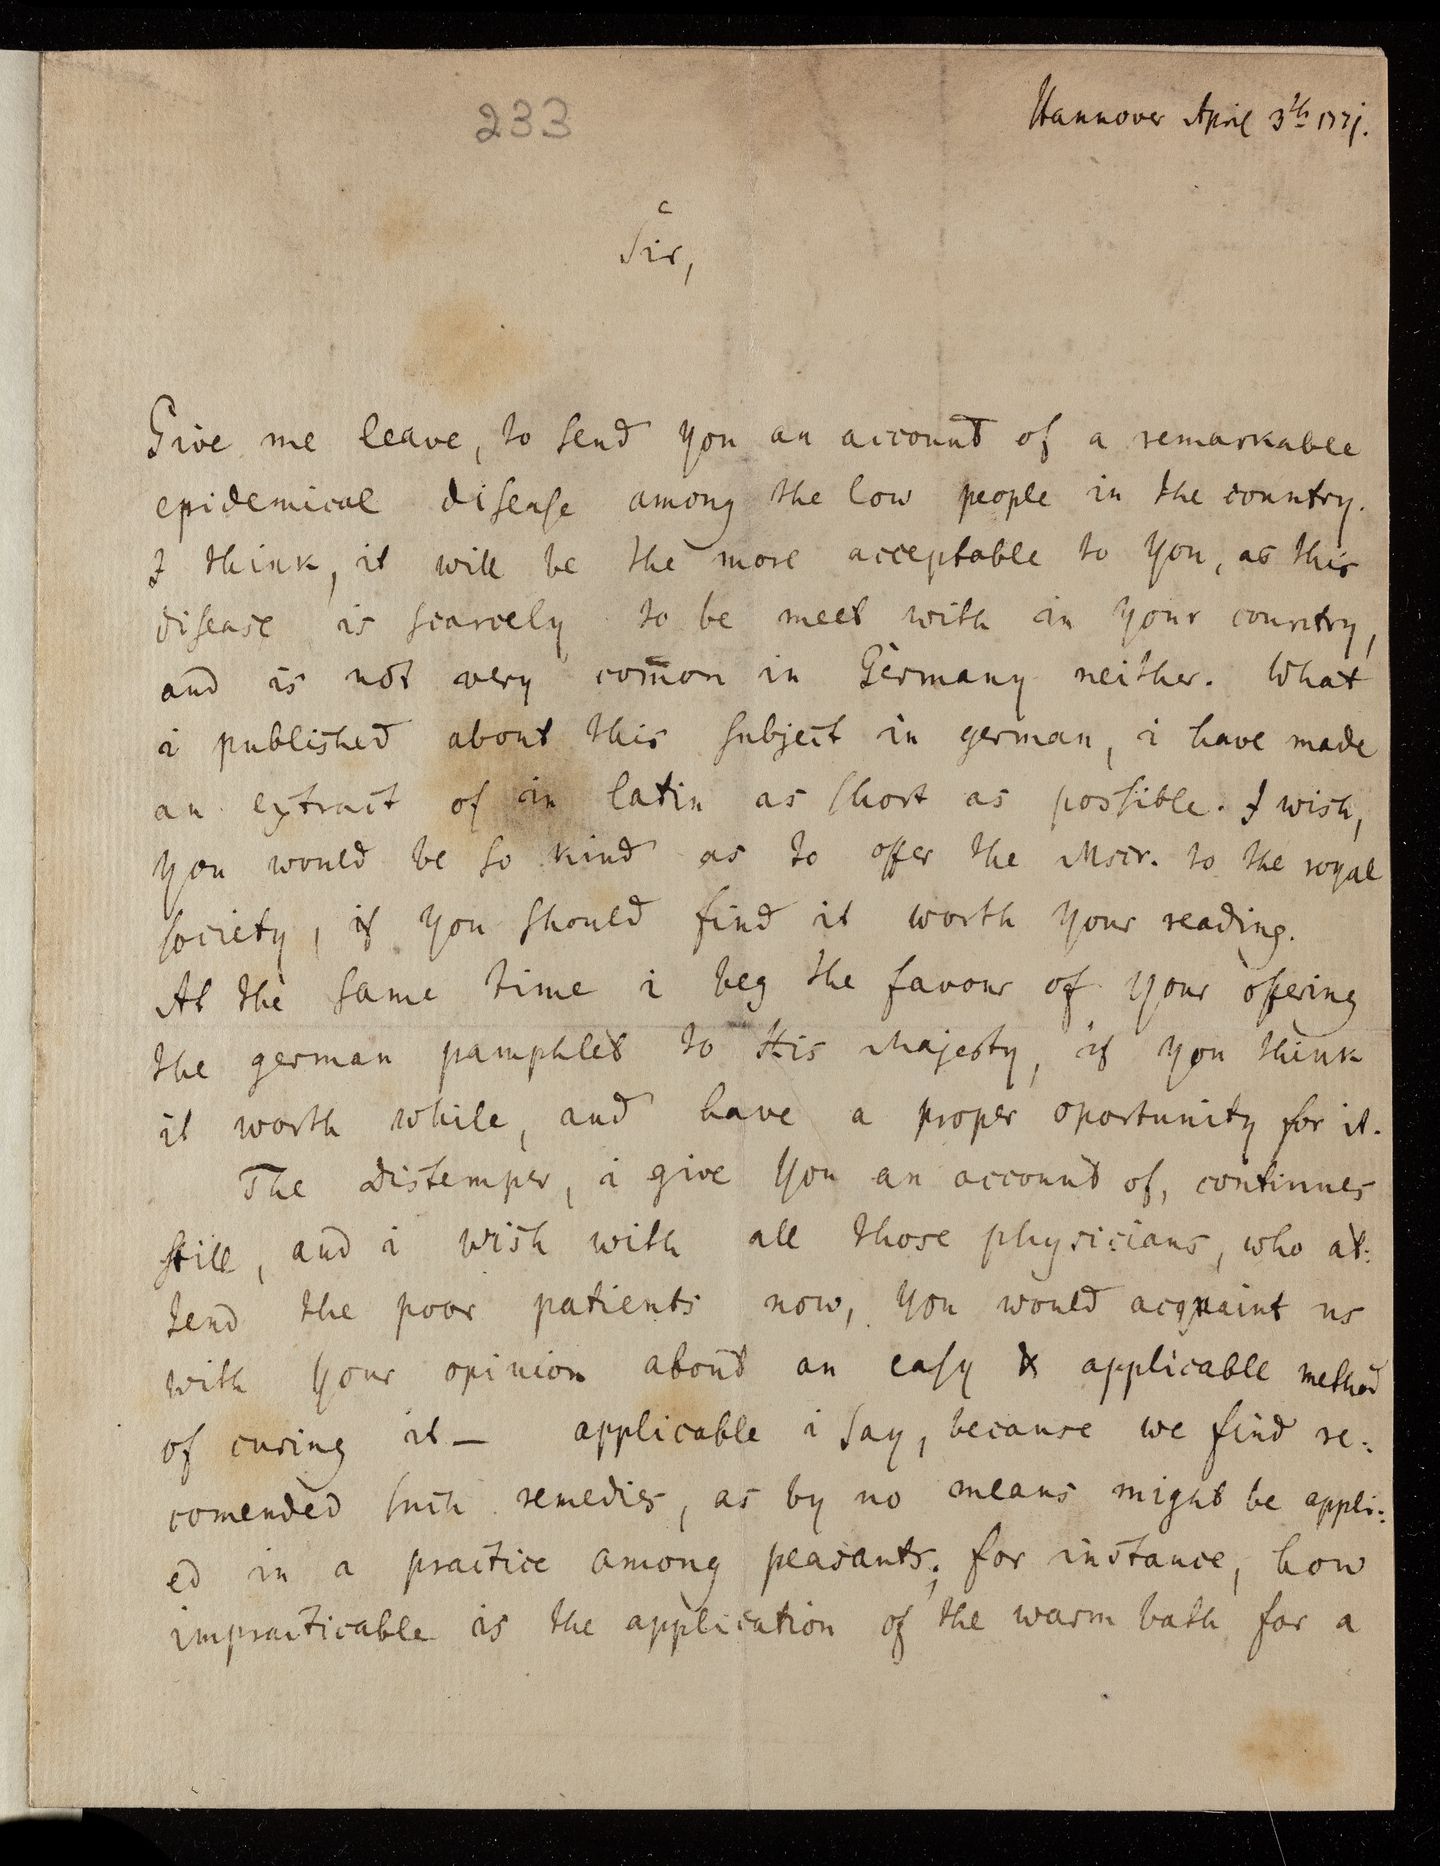 233
Hannover April 3th 1771.
Sir,
Give me leave, to send you an account of a remarkable
epidemical disease among the low people in the country.
I think, it will be the more acceptable to you, as this
disease is scarcely to be meet with in your country,
and is not very com̄on in Germany neither. What
i published about this subject in german, i have made
an extract of in latin as short as possible. I wish,
you would be so kind as to offer the Mscr. to the royal
society, if you should find it worth your reading.
At the same time i beg the favour of your offering
the german pamphlet to His Majesty, if you think
it worth while, and have a proper oportunity for it.
The distemper, i give you an account of, continues
still, and i wish with all those physicians, who at:
tend the poor patients now, you would acquaint us
with your opinion about an easy & applicable method
of curing it — applicable i say, because we find re:
comended such remedies, as by no means might be appli:
ed in a practice among peasants; for instance, how
impracticable is the application of the warm bath for a